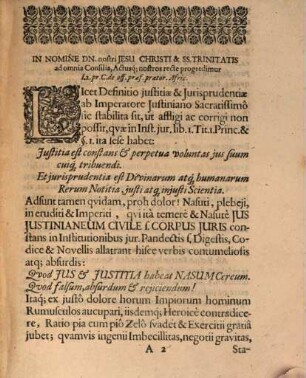 IN NOMINE DN. nostri JESU CHRISTI & SS. TRINITATIS
ad omnia Consilia, Actusq; nostros recte progredimur
L2. pr. C. de off. præf. prætor. Afric.
Licet Definitio justitiæ & Jurisprudentiæ
ab Imperatore Justiniano Sacratissimô
sic stabilita sit, ut affligi ac corrigi non
possit, quæ in Inst. jur. lib. 1. Tit. 1. Princ. &
§. 1. ita sese habet:
Justitia est constans & perpetua voluntas jus suum
cuiq; tribuendi.
Et jurisprudentia est Divinarum atq; humanarum
Rerum Notitia, justi atq; injusti Scientia.
Adsunt tamen quidam, proh dolor! Nasuti, plebeji,
in eruditi & Imperiti, qui ità temerè & Nasutè JUS
JUSTINIANEUM CIVILE s. CORPUS JURIS con-
stans in Institutionibus jur. Pandectis s. Digestis, Co-
dice & Novellis allatrant hisce verbis contumeliosis
atq; absurdis:
Quod JUS & JUSTITIA habeat NASUM Cereum.
Quod falsum, absurdum & rejiciendum!
Itaq; ex justô dolore horum Impiorum hominum
Rumusculos aucupari, iisdemq; Heroicè contradice-
re, Ratio pia cum piô Zelô svadet & Exercitii gratiâ
jubet; quamvis ingenii Imbecillitas, negotii gravitas,
A 2 Sta-